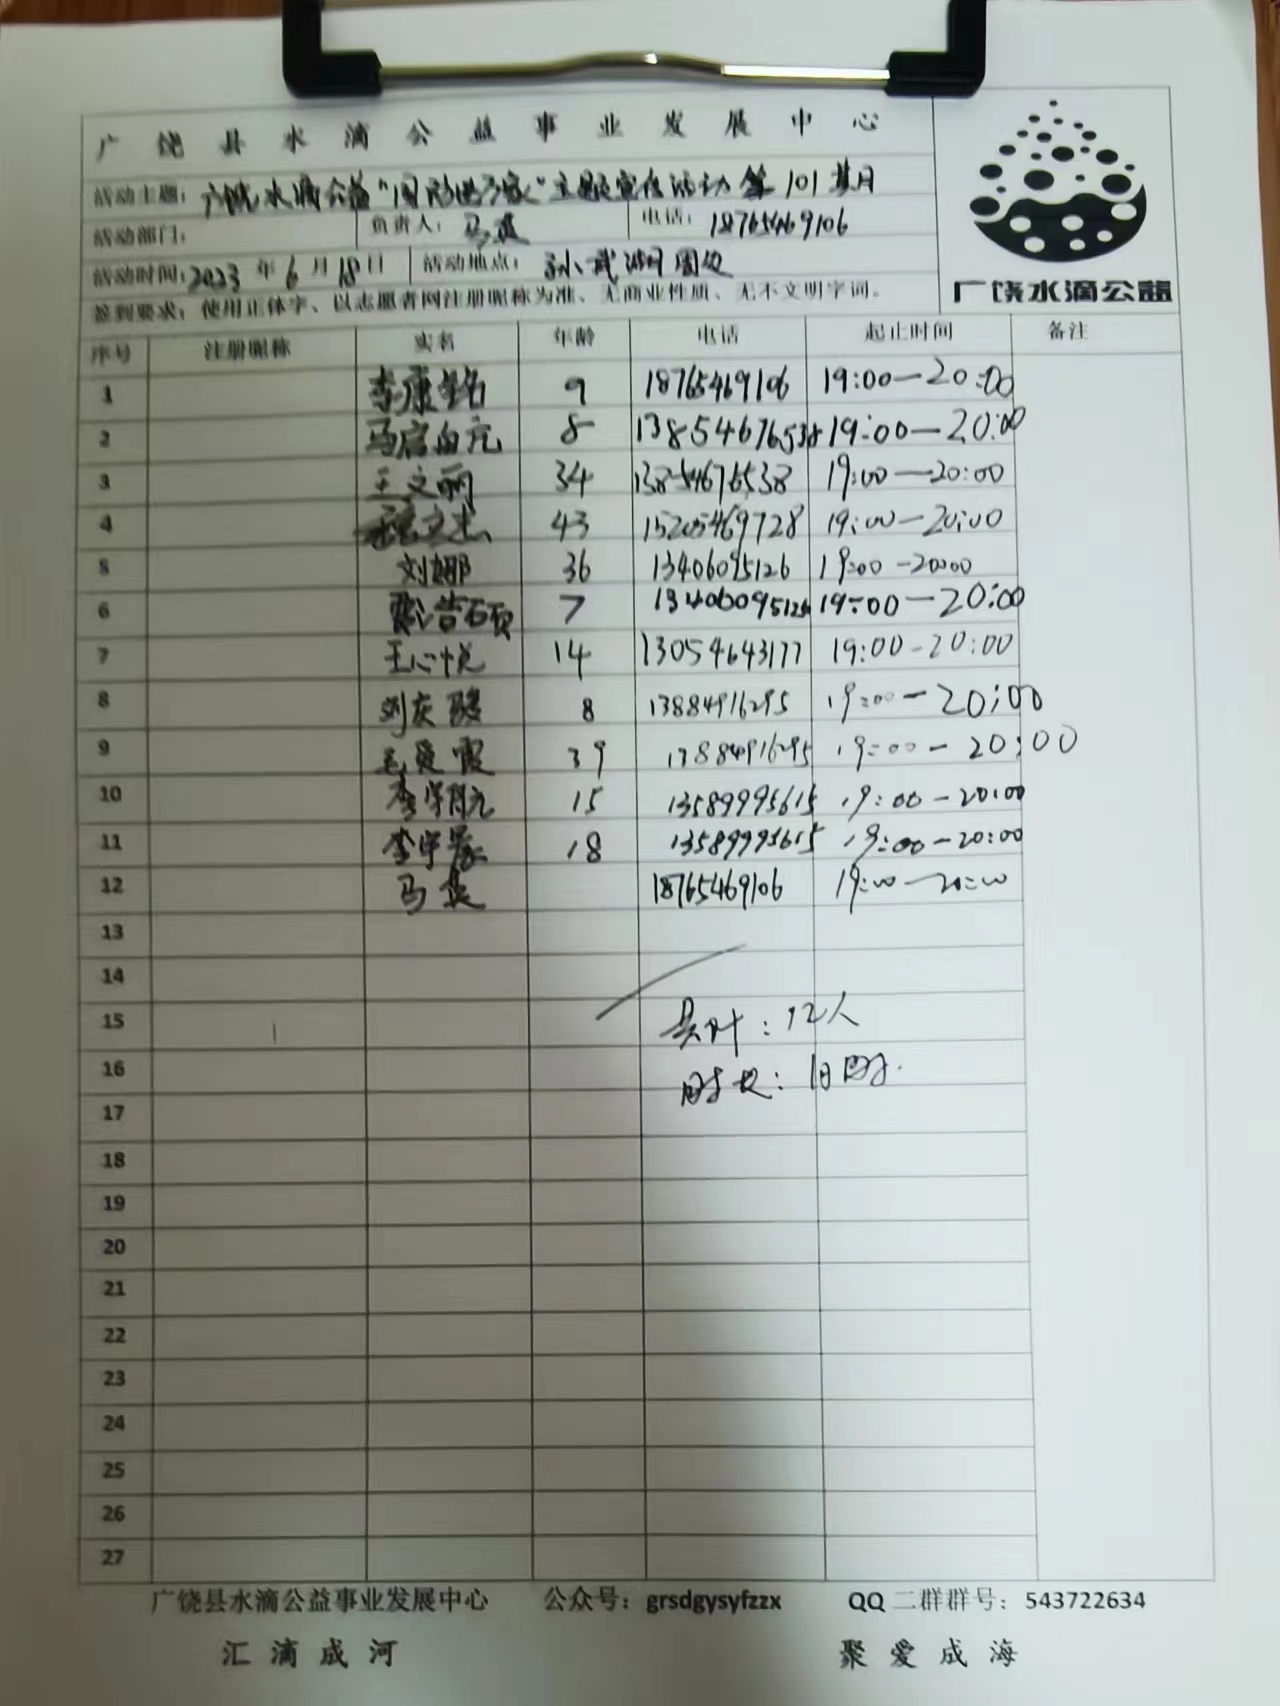 广饶县水滴公益事业发展中心
活动主题：广饶水滴公益"主题宣传活动第101期
活动部门： 负责人：马英 电话：18765469106
活动时间：2023年6月18日 活动地点：孙武湖周边
签到要求：使用正体字、以志愿者网注册昵称为准、无商业性质、无不文明字词。
广饶水滴公益
序号 注册昵称 实名 年龄 电话 起止时间 备注
1 李康铭 9 18765469106 19:00—20:00
2 马启 8 13854676538 19:00—20:00
3 王文丽 34 13854676538 19:00—20:00
4 43 15205469728 19:00—20:00
5 刘娜 36 13406095126 19:00-20:00
6 7 13406095126 19:00—20:00
7 王心悦 14 13054643177 19:00-20:00
8 刘庆 8 13884916295 19:00—20:00
9 毛爱霞 39 13884916295 19:00-20:00
10 李宇航 15 13589995615 19:00-20:00
11 李宇 18 13589995615 19:00-20:00
12 马英 18765469106 19:00—20:00
13
14
15 共计：12人
16 时长：1小时.
17
18
19
20
21
22
23
24
25
26
27
广饶县水滴公益事业发展中心 公众号：grsdgysyfzzx QQ二群群号：543722634
汇滴成河 聚爱成海